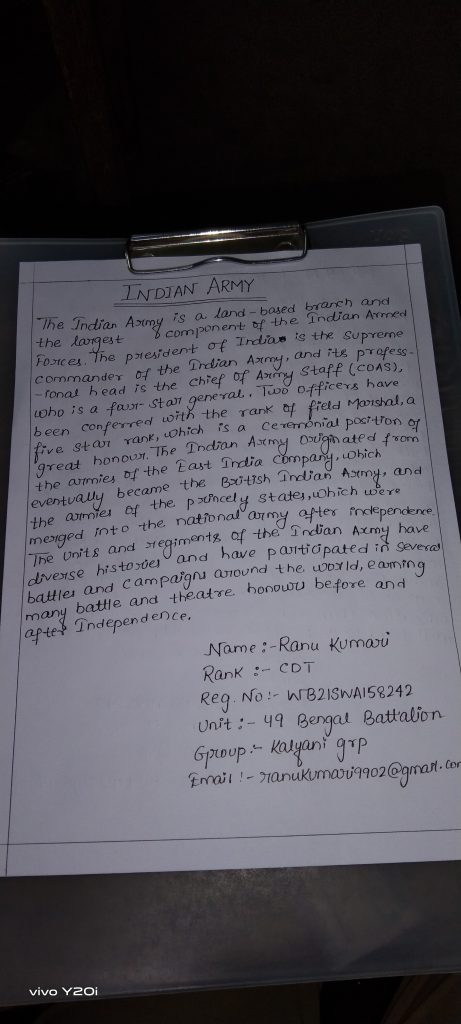 INDIAN ARMY
The Indian Army is a land-based branch and
the largest component of the Indian Armed
Forces. The president of India is the Supreme
commander of the Indian Army, and its profess-
-ional head is the chief of Army Staff (COAS),
who is a four-star general. Two officers have
been conferred with the rank of field Marshal, a
five star rank, which is a ceremonial position of
great honour. The Indian Army originated from
the armies of the East India Company, which
eventually became the British Indian Army, and
the armies of the princely states, which were
merged into the national army after independence.
The units and regiments of the Indian Army have
diverse histories and have participated in several
battles and campaigns around the world, earning
many battle and theatre honours before and
after Independence.
Name :- Ranu Kumari
Rank :- CDT
Reg. No :- WB21SWA158242
Unit :- 49 Bengal Battalion
Group :- Kalyani grp
Email :- ranukumari9902@gmail.com
vivo Y20i